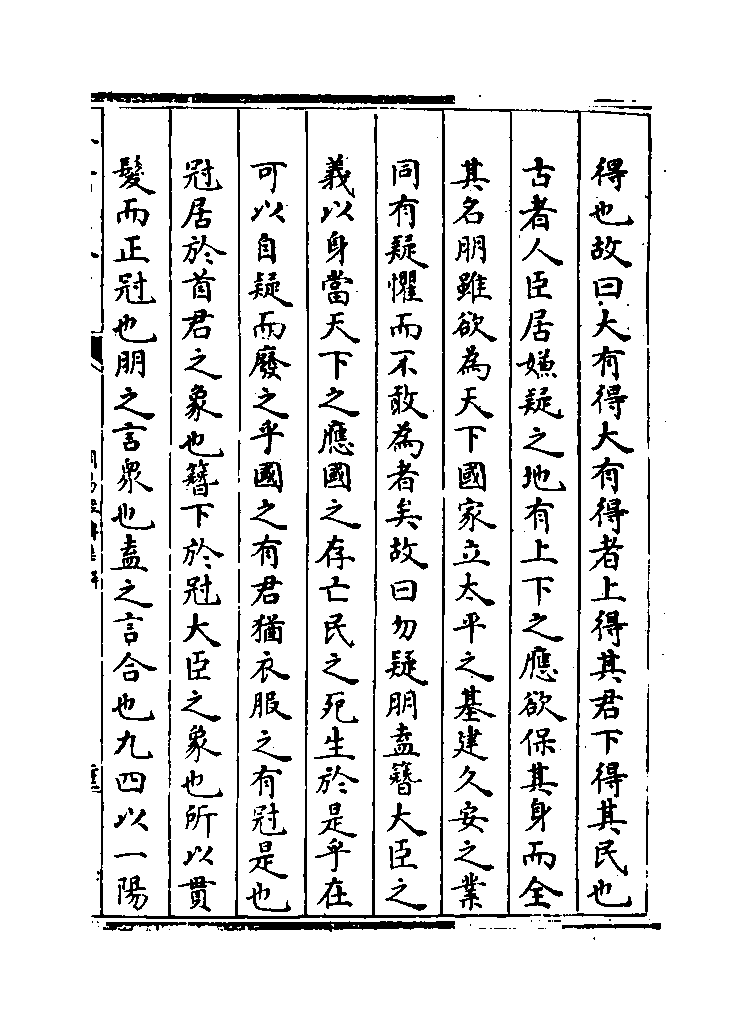 得也故曰大有得大有得者上得其君下得其民也
古者人臣居嫌疑之地有上下之應欲保其身而全
其名朋雖欲為天下國家立太平之基建久安之業
同有疑懼而不敢為者矣故曰勿疑朋盍簪大臣之
義以身當天下之應國之存亡民之死生於是乎在
可以自疑而廢之乎國之有君猶衣服之有冠是也
冠居於首君之象也簪下於冠大臣之象也所以貫
髮而正冠也朋之言衆也盍之言合也九四以一陽